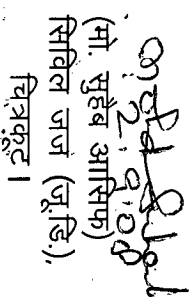 (मो. सुहैब आसिफ)
सिविल जज (जू.डि.),
चित्रकूट।